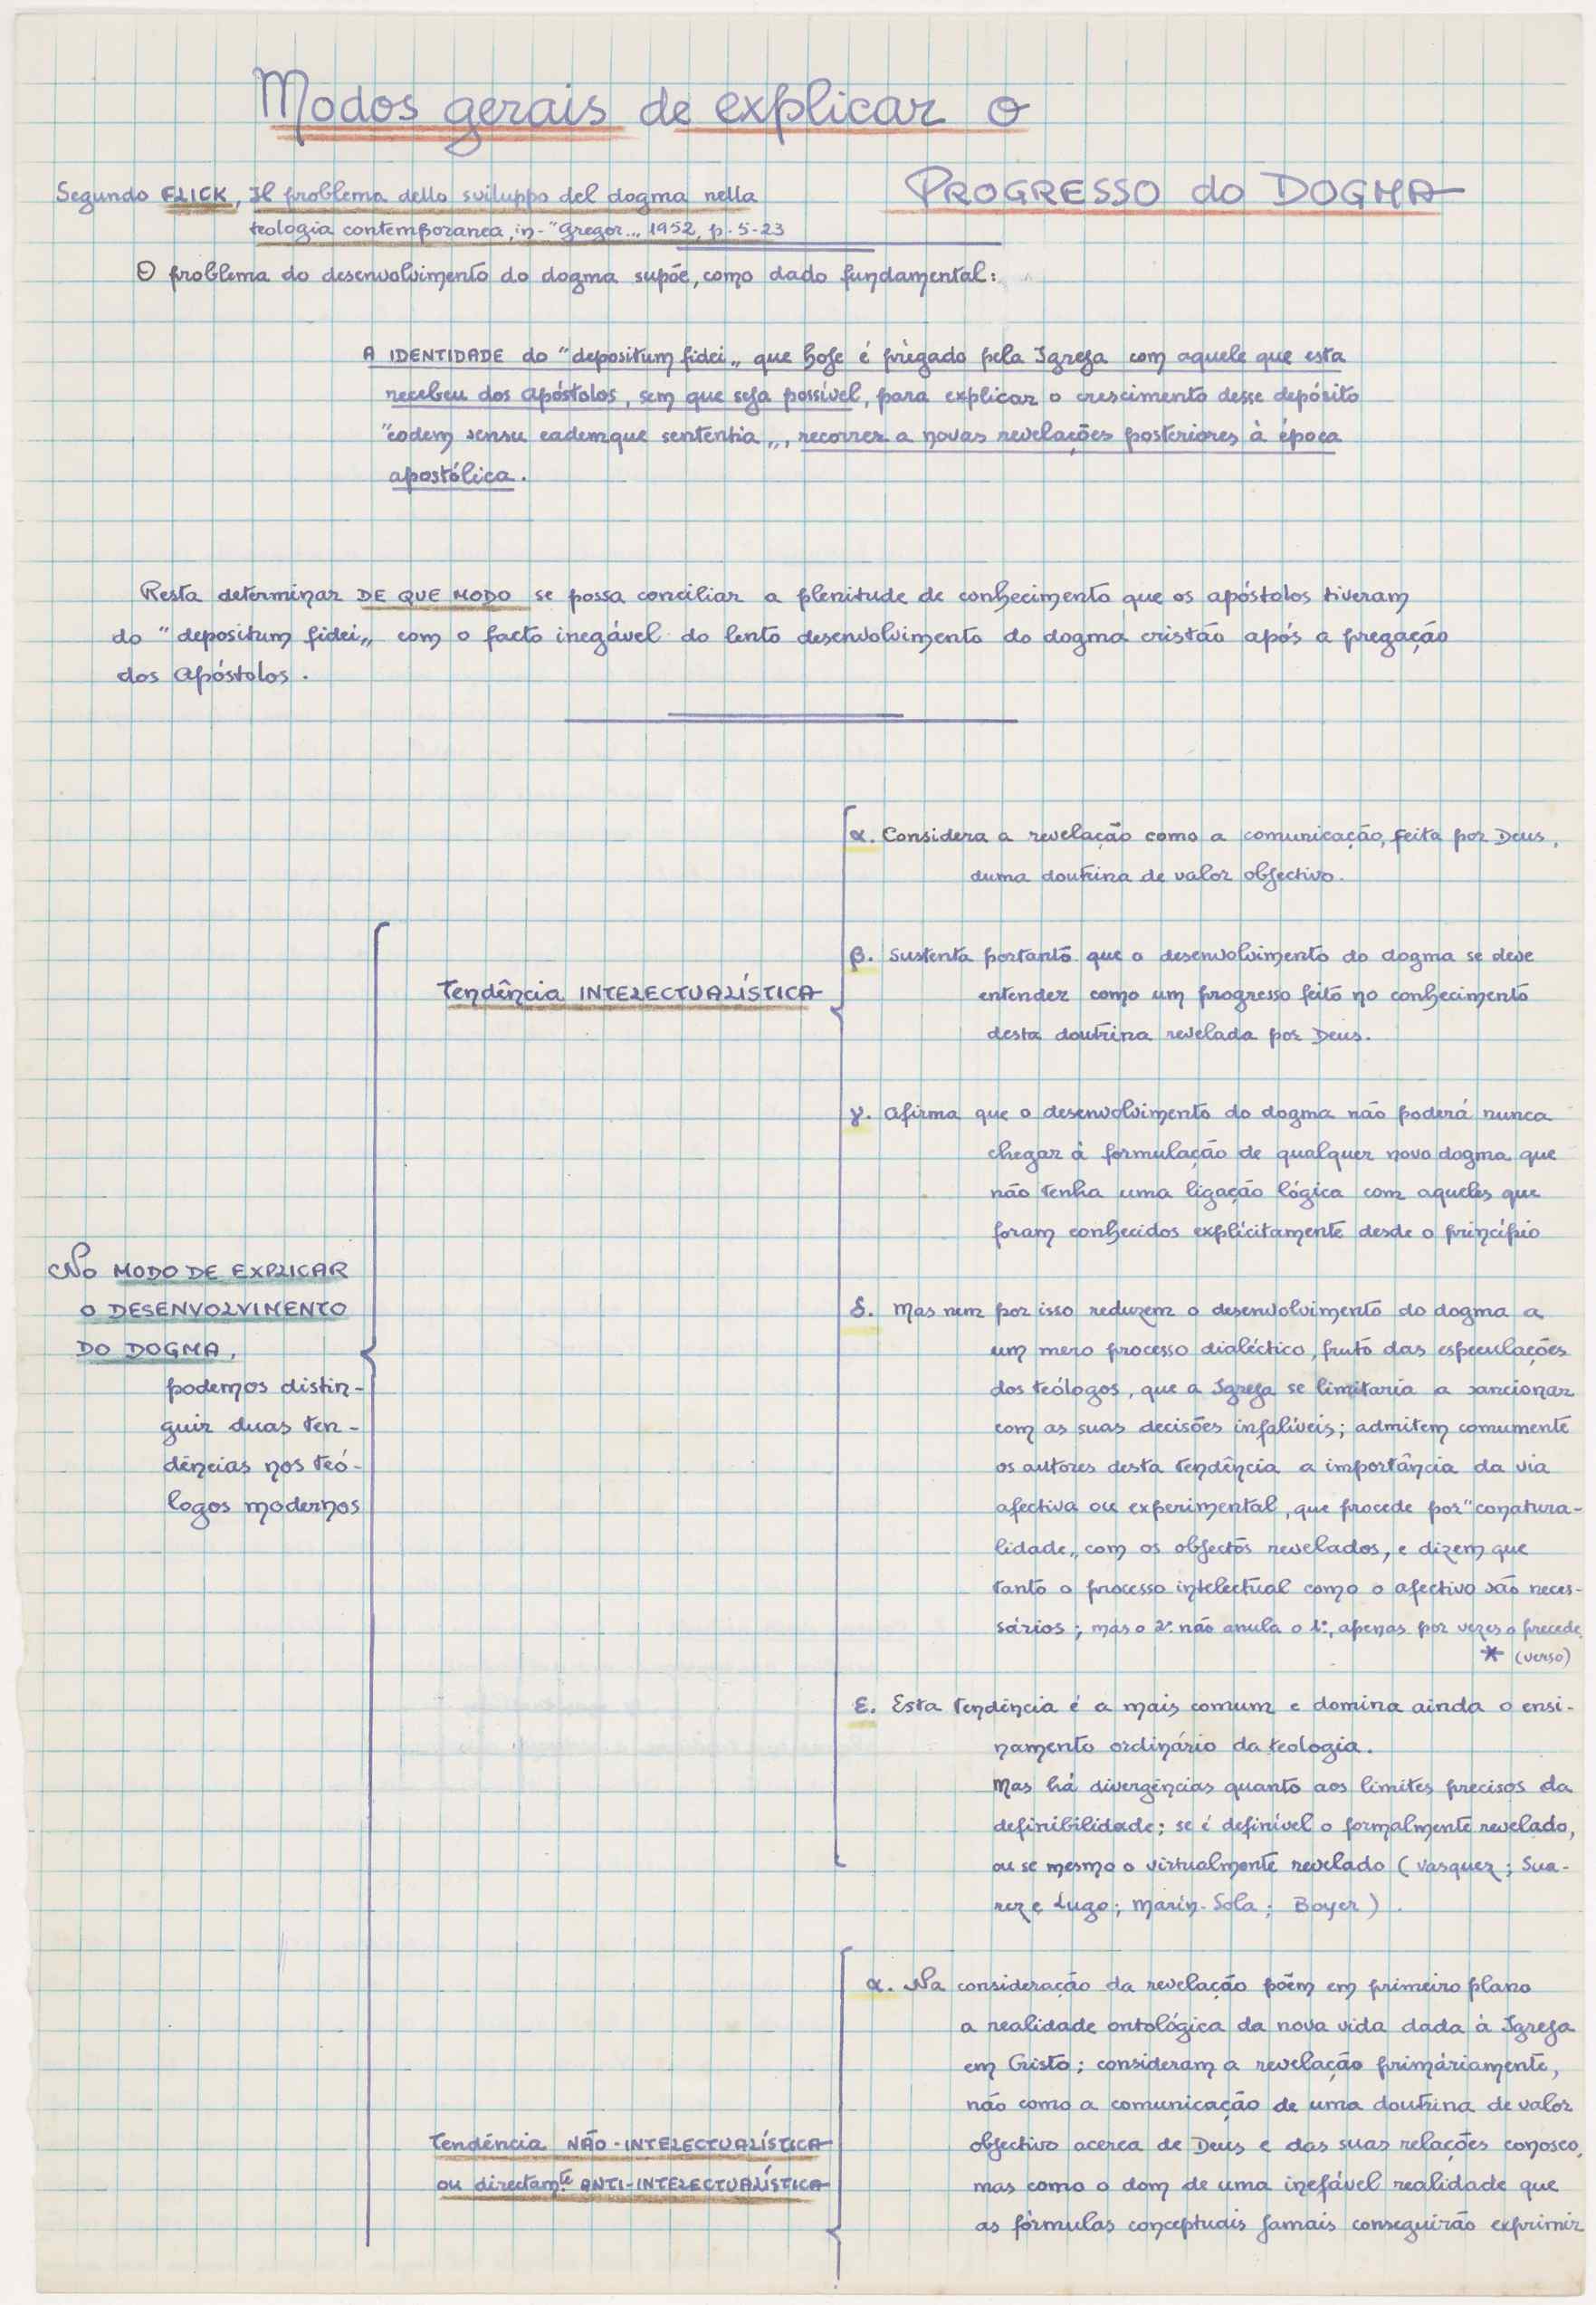 Modos gerais de explicar o
PROGRESSO do DOGMA
Segundo FLICK, Il problema dello sviluppo del dogma nella
teologia contemporanea, in "Gregor.„ 1952, p. 5-23
O problema do desenvolvimento do dogma supõe, como dado fundamental:
A IDENTIDADE do "depositum fidei„ que hoje é prègado pela Igreja com aquele que esta
recebeu dos Apóstolos, sem que seja possível, para explicar o crescimento desse depósito
"eodem sensu eademque sententia„, recorrer a novas revelações posteriores à época
apostólica.
Resta determinar DE QUE MODO se possa conciliar a plenitude de conhecimento que os apóstolos tiveram
do "depositum fidei„ com o facto inegável do lento desenvolvimento do dogma cristão após a pregação
dos Apóstolos.
No MODO DE EXPLICAR
O DESENVOLVIMENTO
DO DOGMA,
podemos distin-
guir duas ten-
dências nos teó-
logos modernos
Tendência INTELECTUALÍSTICA
α. Considera a revelação como a comunicação, feita por Deus,
duma doutrina de valor objectivo.
β. Sustenta portanto que o desenvolvimento do dogma se deve
entender como um progresso feito no conhecimento
desta doutrina revelada por Deus.
γ. Afirma que o desenvolvimento do dogma não poderá nunca
chegar à formulação de qualquer novo dogma que
não tenha uma ligação lógica com aqueles que
foram conhecidos explìcitamente desde o princípio
δ. Mas nem por isso reduzem o desenvolvimento do dogma a
um mero processo dialéctico, fruto das especulações
dos teólogos, que a Igreja se limitaria a sancionar
com as suas decisões infalíveis; admitem comumente
os autores desta tendência a importância da via
afectiva ou experimental, que procede por "conatura-
lidade„ com os objectos revelados, e dizem que
tanto o processo intelectual como o afectivo são neces-
sários; mas o 2º não anula o 1º, apenas por vezes o precede.
* (verso)
ε. Esta tendência é a mais comum e domina ainda o ensi-
namento ordinário da teologia.
Mas há divergências quanto aos limites precisos da
definibilidade; se é definível o formalmente revelado,
ou se mesmo o virtualmente revelado (Vasquez; Sua-
rez e Lugo; Marín-Sola; Boyer).
Tendência NÃO-INTELECTUALÍSTICA
ou directam.te ANTI-INTELECTUALÍSTICA
α. Na consideração da revelação põem em primeiro plano
a realidade ontológica da nova vida dada à Igreja
em Cristo; consideram a revelação primàriamente,
não como a comunicação de uma doutrina de valor
objectivo acerca de Deus e das suas relações conosco,
mas como o dom de uma inefável realidade que
as fórmulas conceptuais jamais conseguirão exprimir